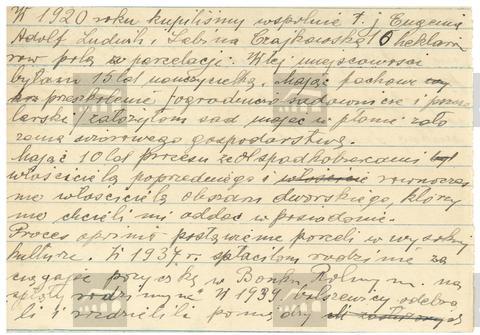 W 1920 roku kupiliśmy wspólnie t. j Eugenia
Adolf Ludwik i Sabina Czajkowska 10 hekta
rów pola z parcelacji. W tej miejscowości
byłam 15 lat nauczycielką. Mając fachowe
przeszkolenie /ogrodniczo sadownicze i pszcze
larskie/ założyłam sad mając w planie zało
żenie wzorowego gospodarstwa.
Mając 10 lat procesu ze współspadkobiercami
właściciela poprzedniego i równocześ
nie właściciela obszaru dworskiego, który
nie chcieli mi oddać w posiadanie.
Proces opinię postawienie pozeli w wysokiej
kulturze. W 1937 r. spłaciłam rodzinę za
ciągając pożyczkę w Banku Rolnym na
spłaty rodzinne W 1939 bolszewicy odebra
li i rozdzielili pomiędzy